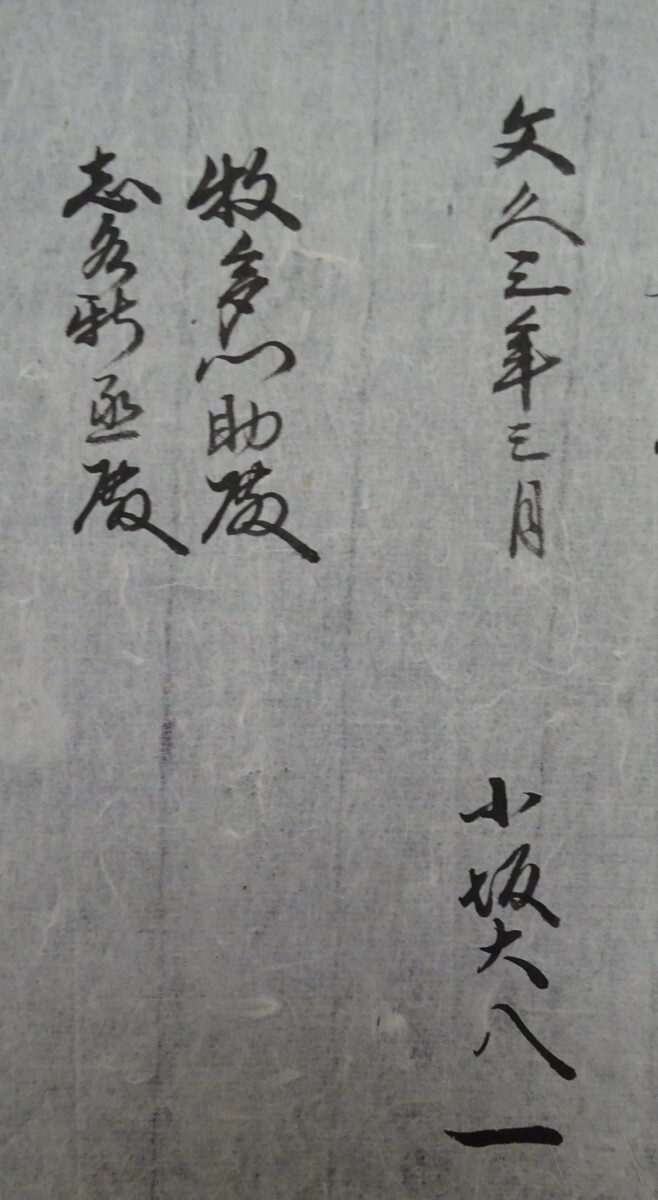 文久三年三月
小坂大八
牧多門助殿
志水新丞殿